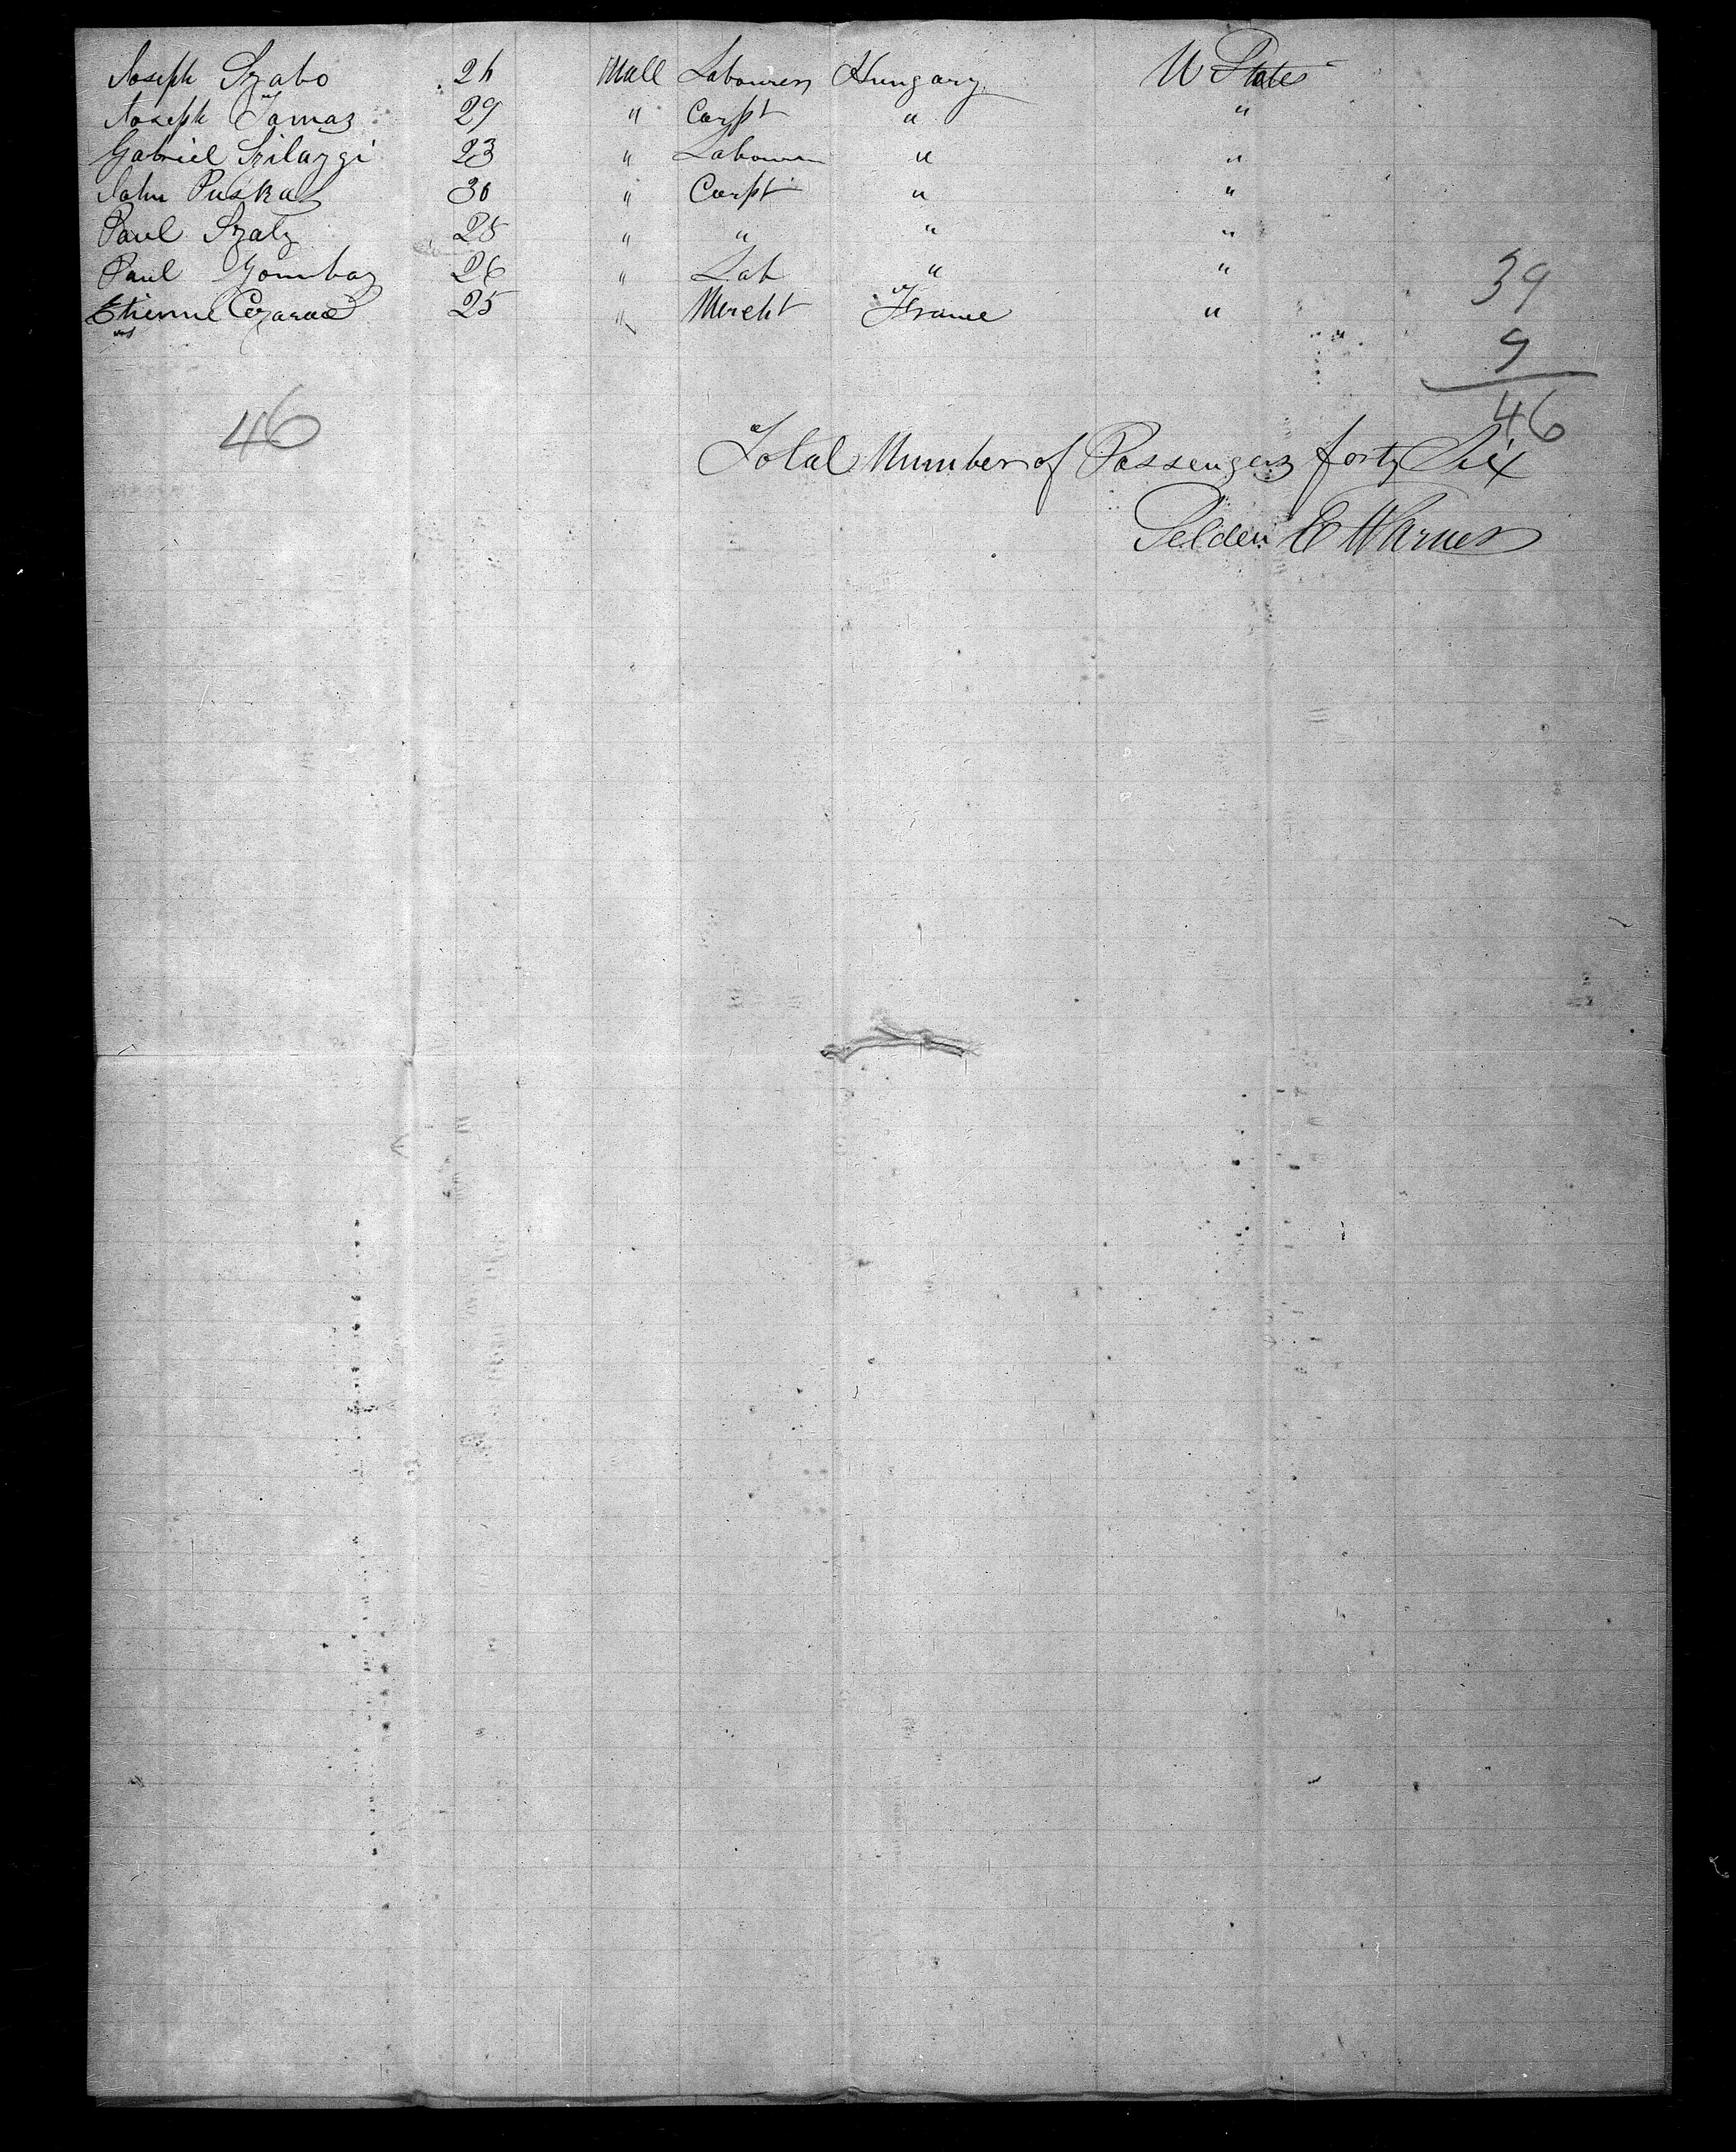 Joseph Szabo 26 Mall Labourer Hungary U States
Joseph Tamas 29 " Carpt " "
Gabriel Szilazgi 23 " Labourer " "
John Puskas 30 " Carpt " "
Paul Szaly 28 " " " "
Paul Gombaz 26 " Lab " "
Etienne 25 " Mercht France "
39
9
46
46
Total Number of Passengers forty Six
Selden E Warner